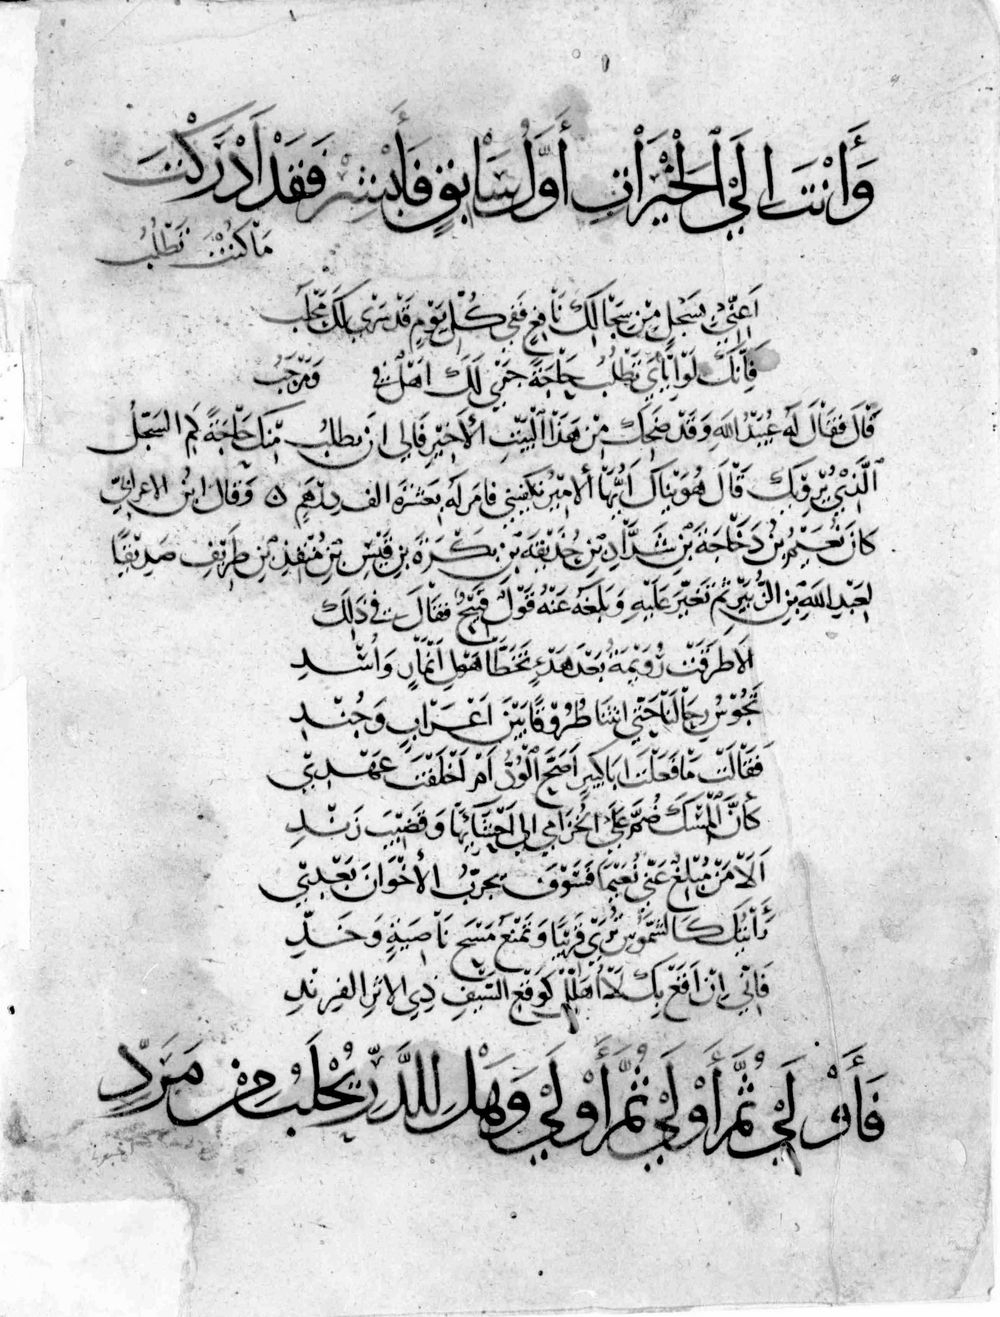 وَأَنْتَ إِلَى الْخَيْرَاتِ أَوَّلُ سَابِقٍ فَأَبْشِرْ فَقَدْ أَدْرَكْتَ
مَا كُنْتَ تَطْلُبُ
أَعِنِّي بِسَجْلٍ مِنْ سِجَالِكَ نَافِعٍ فَفِي كُلِّ يَوْمٍ قَدْ سَرَى لَكَ مِحْلَبُ
فَإِنَّكَ لَوْ إِيَّايَ تَطْلُبُ حَاجَةً جَرَى لَكَ أَهْلٌ فِي وَمَرْحَبُ
قَالَ فَقَالَ لَهُ عُبَيْدُ اللهِ وَقَدْ ضَحِكَ مِنْ هَذَا الْبَيْتِ الْأَخِيرِ فَإِنِّي لَا أَطْلُبُ مِنْكَ حَاجَةً كَمِ السَّجْلُ
الَّذِي يُرْوِيكَ قَالَ هُوَيْنَاكَ أَيُّهَا الْأَمِيرُ يَكْفِينِي فَأَمَرَ لَهُ بِعَشَرَةِ أَلْفِ دِرْهَمٍ ٥ وَقَالَ ابْنُ الْأَعْرَابِيِّ
كَانَ نُعَيْمُ بْنُ دَخَاجَةَ بْنِ شَدَّادِ بْنِ حُذَيْفَةَ بْنِ بَكْرَةَ بْنِ قَيْسِ بْنِ مُنْقِذِ بْنِ طَرِيفٍ صَدِيقًا
لِعَبْدِ اللهِ بْنِ الزُّبَيْرِ ثُمَّ تَغَيَّرَ عَلَيْهِ وَبَلَغَهُ عَنْهُ قَوْلٌ قَبِيحٌ فَقَالَ فِي ذَلِكَ
أَلَا طَرَقَتْ رُوَيْمَةُ بَعْدَ هَدْءٍ تَخَطَّى هَوْلَ أَنْمَارٍ وَأُسْدِ
تَجُوسُ رِحَالَنَا حَتَّى أَتَتْنَا طُرُوقًا بَيْنَ أَعْرَابٍ وَجُنْدِ
فَقَالَتْ مَا فَعَلْتَ أَبَا كَبِيرٍ أَصَحَّ الْوُدُّ أَمْ أَخْلَفْتَ عَهْدِي
كَأَنَّ الْمِسْكَ ضُمَّ عَلَى الْخُزَامَى إِلَى أَحْشَائِهَا وَقَضِيبَ رَنْدِ
أَلَا مَنْ مُبْلِغٌ عَنِّي نُعَيْمًا فَسَوْفَ يُجَرِّبُ الْإِخْوَانَ بَعْدِي
رَأَيْتُكَ كَالشَّمُوسِ تُرَى قَرِيبًا وَتَمْنَعُ مَسْحَ نَاصِيَةٍ وَخَدِّ
فَإِنِّي إِنْ أَقَعْ بِكَ لَا أُهَلِّلْ كَوَقْعِ السَّيْفِ ذِي الْأَثَرِ الْفِرِنْدِ
فَأَوْلَى ثُمَّ أَوْلَى ثُمَّ أَوْلَى وَهَلْ لِلدَّرِّ يُحْلَبُ مِنْ مَرَدِّ